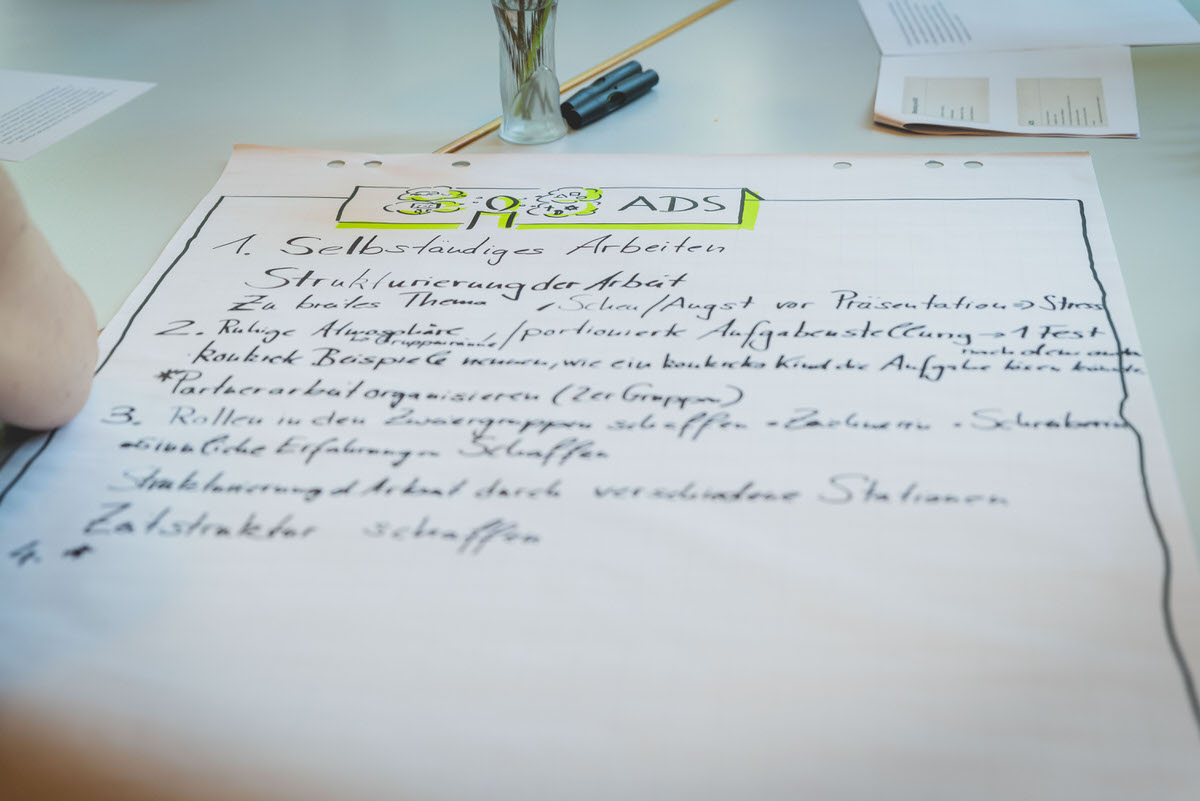 ADS
1. Selbständiges Arbeiten
Strukturierung der Arbeit
Zu breites Thema / Scheu/Angst vor Präsentation => Stress
2. Ruhige Atmosphäre / portionierte Aufgabenstellung → 1 Fest
Gruppenräume nach dem auch
konkrete Beispiele nennen, wie ein konkretes Kind die Aufgabe lösen könnte
*Partnerarbeit organisieren (2er Gruppen)
3. Rollen in den Zweiergruppen schaffen - Zeichnerin - Schreiberin
Sinnliche Erfahrungen Schaffen
Strukturierung d Arbeit durch verschiedene Stationen
Zeitstruktur schaffen
4. *